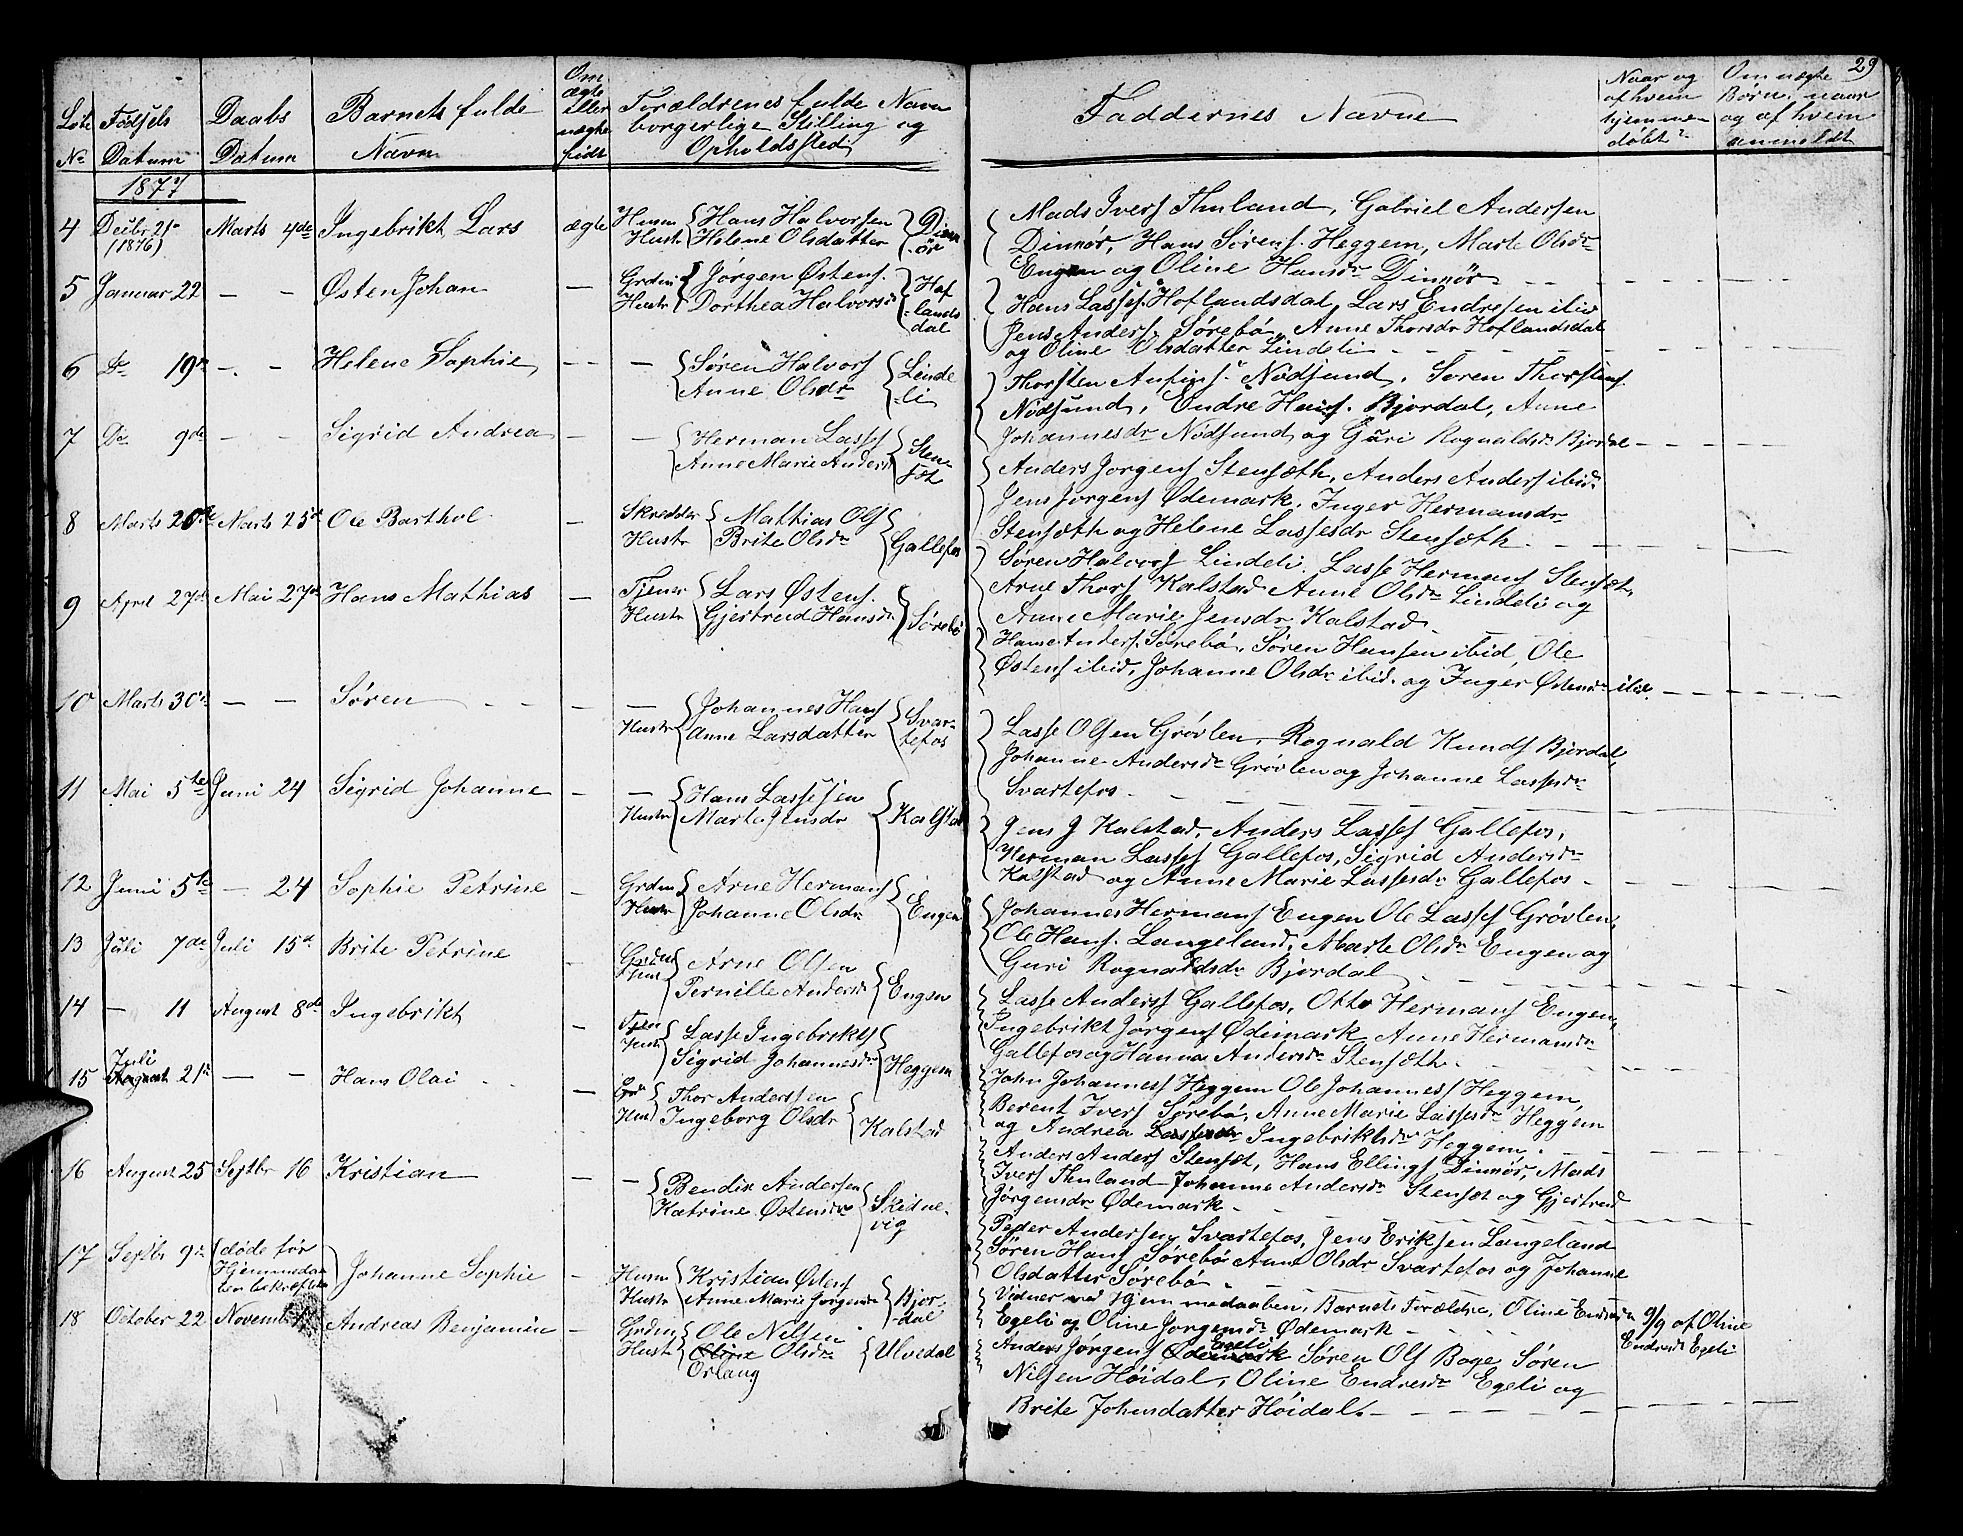 29
Løbe No. Fødsels Datum Daabs Datum Barnets fulde Navn Om ægte eller uægte født Forældrenes fulde Navn borgerlige Stilling og Opholdssted Faddernes Navne Naar og af hvem hjemmedøbt? Om uægte Børn, naar og af hvem anmeldt
1877
4 Decbr 21 (1876) Marts 4de Ingebrikt Lars ægte Husm Hans Halvorsen Hust Helene Olsdatter Dimmör
Mads Ivers Thuland, Gabriel Andersen
Dimmör, Hans Sörens. Heggem, Marte Olsdr
Engen og Oline Hansdr Dimmör
5 Januar 22 — — Østen Johan — Grdm Jørgen Østens. Hustr Dorthea Halvorsd Hoflandsdal
Hans Lasses. Hoflandsdal, Lars Endresen ibid
Jens Anders. Sørebø, Anne Thorsdr Hoflandsdal
og Oline Olsdatter Lindeli
6 Do 19de — — Helene Sophie — — Søren Halvors Anne Olsdr Lindeli
Thorsten Anfins. Nødsund, Soren Thorstens.
Nødsund, Endre Hans. Bjordal, Anne
Johannesdr Nødsund og Guri Rognaldsdr Bjordal
7 Do 9de — — Sigrid Andrea — — Herman Lasses Anne Marie Andersd Stensæt
Anders Jørgens Stensæth, Anders Anders ibid
Jens Jorgens Ødemark, Inger Hermansdr
Stensæth og Helene Lassesdr Stensæth.
8 Marts 20de Marts 25de Ole Barthol — Skredder Mathias Ols Hustr Brite Olsdr Gallefos
Søren Halvors Lindeli, Lasse Hermans Stensæt,
Arne Thors Kalstad Anne Olsdr Lindeli og
Anne Marie Jensdr Kalstad.
9 April 27de Mai 27de Hans Mathias — Tjener Lars Østens. Hustr Gjertrud Hansdr Sørebø
Hans Anders. Sørebø, Søren Hansen ibid, Ole
Østens ibid, Johanne Olsdr ibid. og Inger Østensdr ibid.
10 Marts 30de — — Søren — — Johannes Hans Hustr Anne Larsdatter Svartefos
Lasse Olsen Grøvlen, Rognald Knuds Bjordal,
Johanne Andersdr Grøvlen og Johanne Lassesdr
Svartefos
11 Mai 5te Juni 24 Sigrid Johanne — — Hans Lassesen Hustr Marte Jensdr Kalstad
Jens J Kalstad, Anders Lasses Gallefos,
Herman Lasses Gallefos, Sigrid Andersdr
Kalstad og Anne Marie Lassesdr Gallefos
12 Juni 5te — 24 Sophie Petrine — Grdm Arne Hermans Hustr Johanne Olsdr Engen
Johannes Hermans Engen Ole Lasses Grøvlen,
Ole Hans. Langeland, Marte Olsdr Engen og
Guri Rognaldsdr Bjordal
13 Juli 7de Juli 15de Brite Petrine — Grdm Arne Olsen Hust Pernille Andersd Engen
Lasse Anders Gallefos, Otto Hermans Engen,
Ingebrikt Jørgens Ødemark Anne Hermansdr
Gallefos og Hanna Andersdr Stensæth.
14 — 11 August 8de Ingebrikt — Tjen Lasse Ingebrikts Hustr Sigrid Johannesdr Heggem
John Johanness Heggem Ole Johanness Heggem,
Berent Ivers Sørebø, Anne Marie Lassesdr Heggem
og Andrea Lassesdr Ingebriktsdr Heggem.
15 Juli August 21de — — Hans Olai — Thor Anderssen Hus Ingeborg Olsdr Kalstad
Anders Anders Stensæt, Hans Ellings Dimmör, Mads
Ivers Thuland Johanne Andersdr Stensæt og Gjertrud
Jörgensdr Ødemark
16 August 25 Septbr 16 Kristian — — Bendix Andersen Katrine Østensdr Skidnevig
Peder Andersen Svartefos, Jens Eriksen Langeland
Sören Hans Sørebø Anne Olsdr Svartefos og Johanne
Olsdatter Sørebø
17 Septbr 9de døde før Hjemmedaaben bekræftes Johanne Sophie — Husm Kristian Østens Hustr Anne Marie Jorgensdr Bjordal
Vidner ved Hjemmedaaben, Barnets Forældre, Oline Endresdr
Egeli og Oline Jorgensdr Ødemark
9/9 af Oline Endresdr Egeli
18 October 22 November Andreas Benjamin — Grdm Ole Nilsen Hust Oline Olsdr Orlaug Ulvedal
Anders Jørgens Ødemark Egeli Søren Ols Boge Søren
Nilsen Høidal, Oline Endresdr Egeli og
Brite Johnsdatter Høidal.